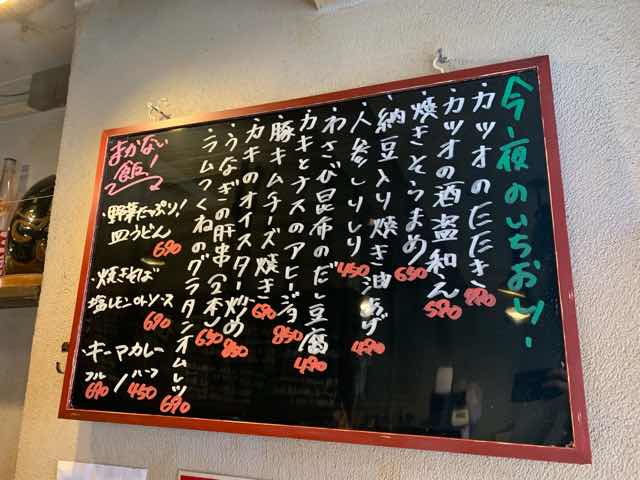 今夜のいちおし!
・カツオのたたき 790
・カツオの酒盗和え 590
・焼きそうめん 650
・納豆入り焼き油あげ 490
・人参しりしり 450
・わさび昆布のだし豆腐 490
・カキとナスのアヒージョ 850
・豚キムチーズ焼き 690
・カキのオイスター炒め 850
・うなぎの肝串(2本) 650
・ラムつくねのグラタンオムレツ 690
まかない飯!
・野菜たっぷり!
皿うどん 690
・焼きそば
塩レモン or ソース 690
・キーマカレー
フル 690 / ハーフ 450